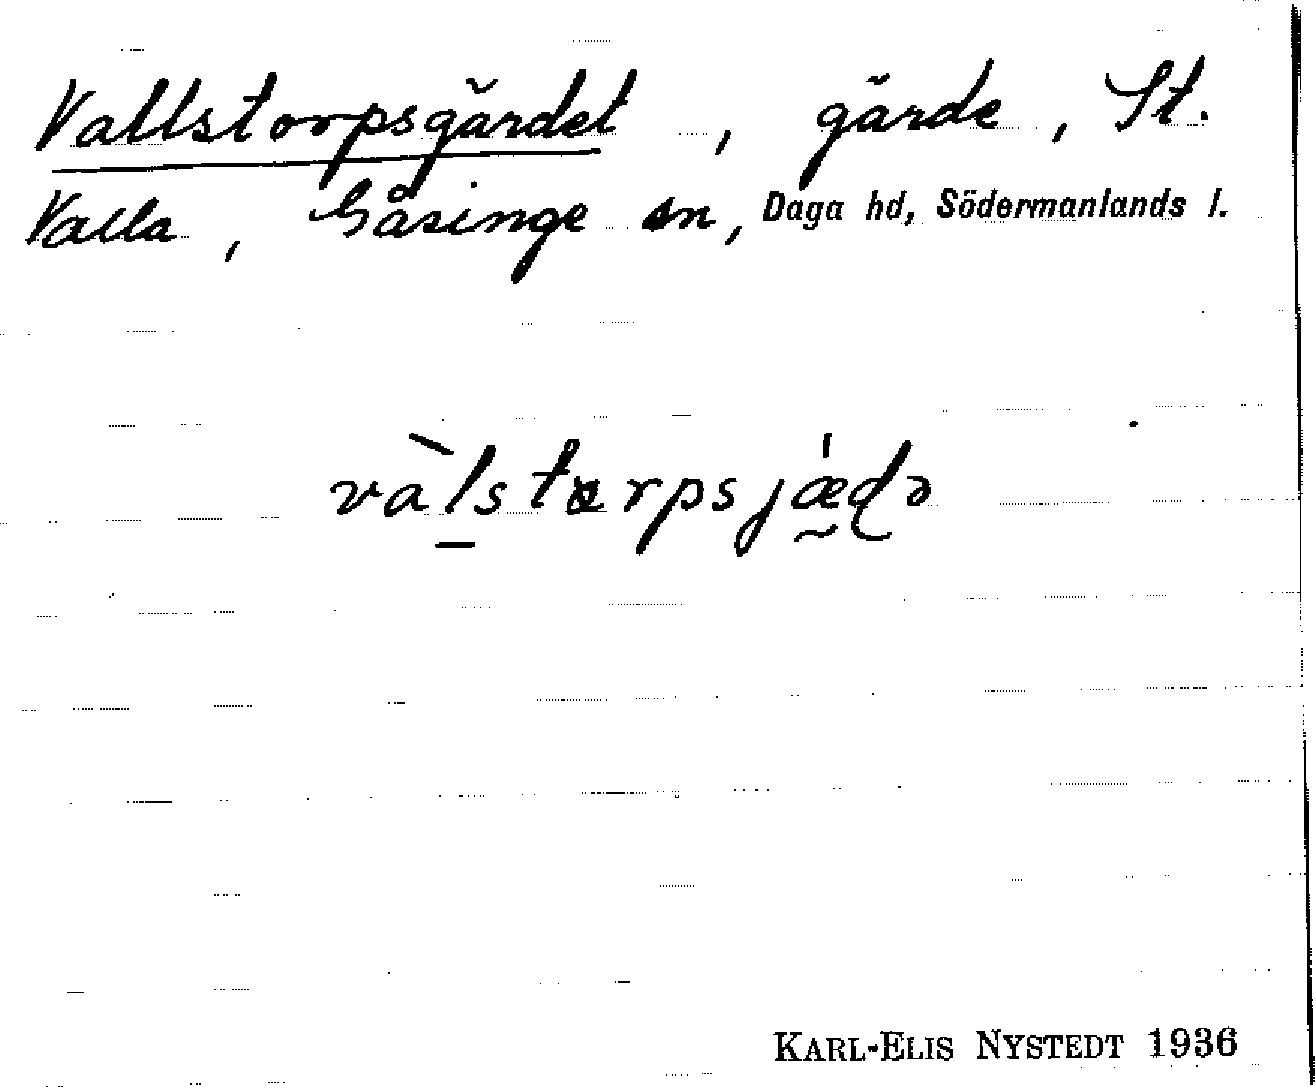 Vallstorpsgärdet, gärde, St.
Valla, Gåsinge sn, Daga hd, Södermanlands l.
va̍̀l̠storpsjǽ̰ɖə
KARL-ELIS NYSTEDT 1936